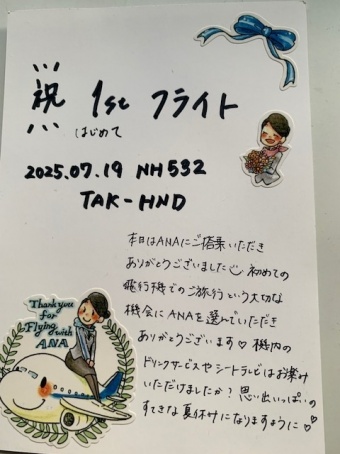 祝 1st フライト
はじめて
2025.07.19 NH532
TAK-HND
本日はANAにご搭乗いただき
ありがとうございました 初めての
飛行機でのご旅行という大切な
機会にANAを選んでいただき
ありがとうございます♡ 機内の
ドリンクサービスやシートテレビはお楽しみ
いただけましたか？思い出いっぱいの
すてきな夏休みになりますように♡
Thank you
for
Flying
with
ANA